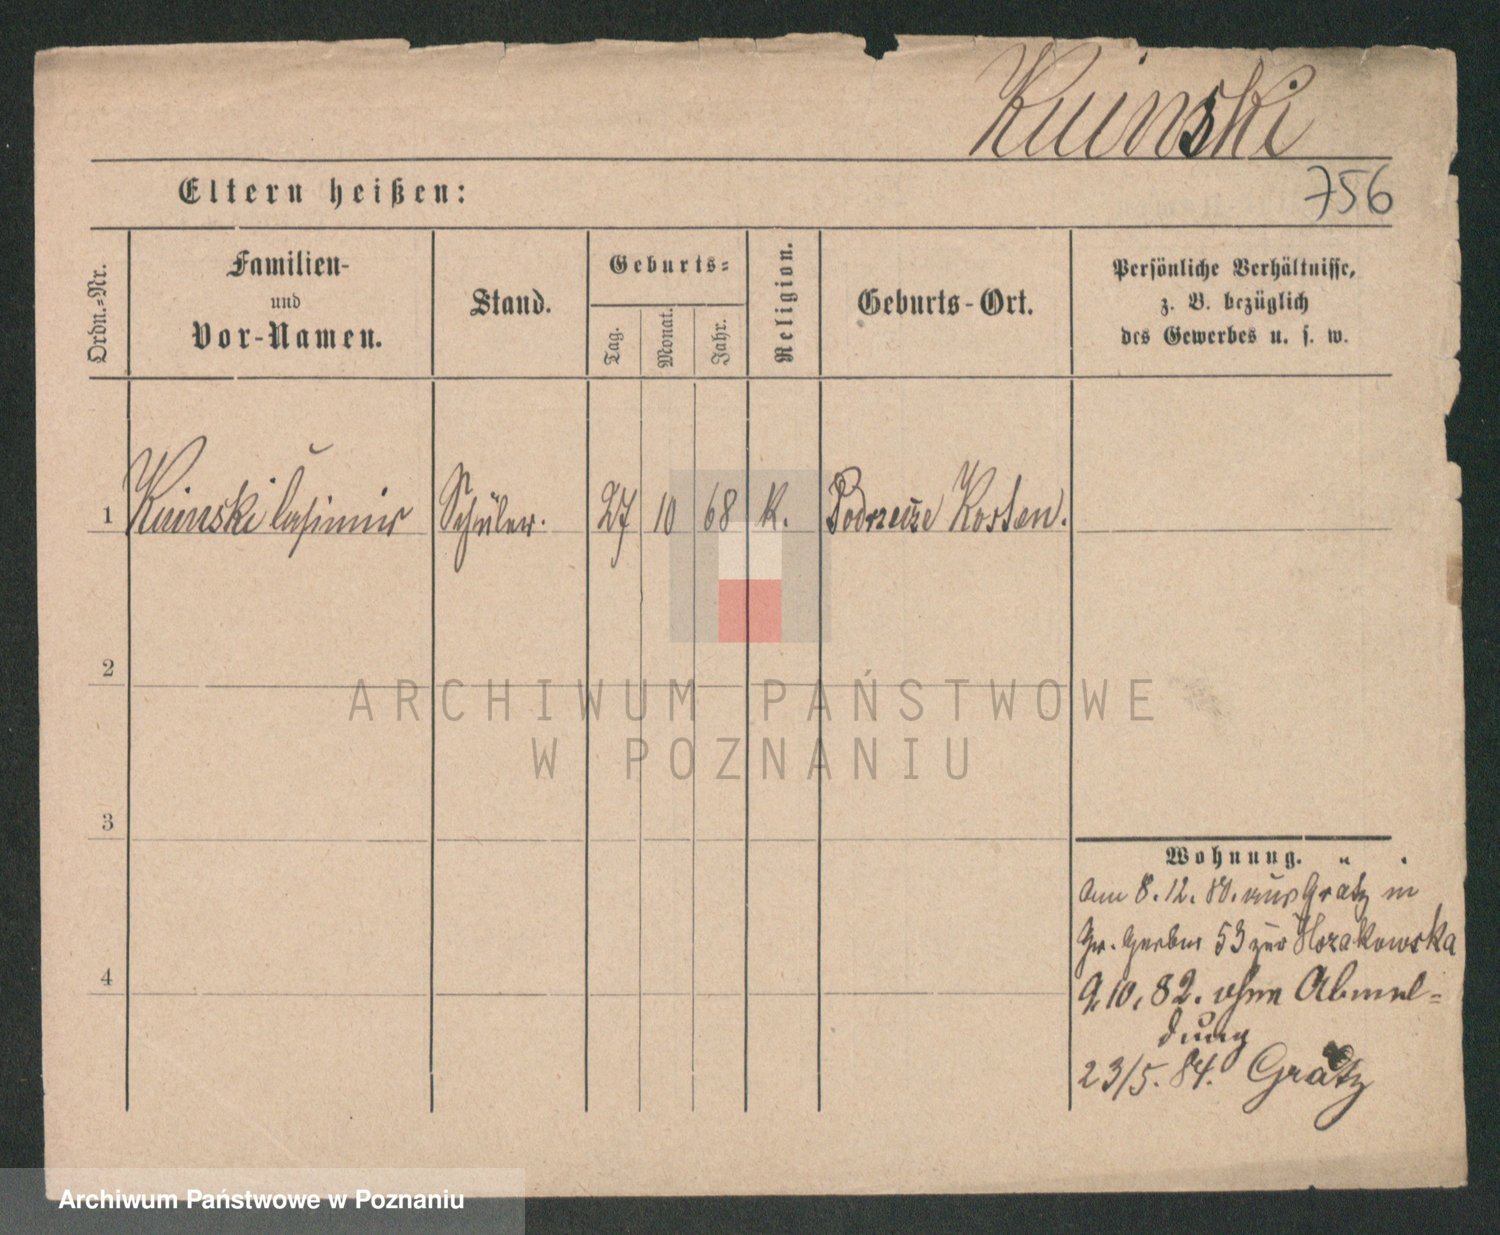 Kuinski
756
Eltern heißen:
Ordn.-Nr.
Familien-
und
Vor-Namen.
Stand.
Geburts-
Tag.
Monat.
Jahr.
Religion.
Geburts-Ort.
Persönliche Verhältnisse,
z. B. bezüglich
des Gewerbes u. s. w.
1 Kuinski Casimir Schüler. 27 10 68 K. Kosten.
2
ARCHIWUM PAŃSTWOWE
W POZNANIU
3
4
Wohnung.
am 8.12. 80. aus Grätz in
Gr. Gerber 53 zur
9.10.82. ohne Abmel-
dung
23/5. 84. Grätz
Archiwum Państwowe w Poznaniu